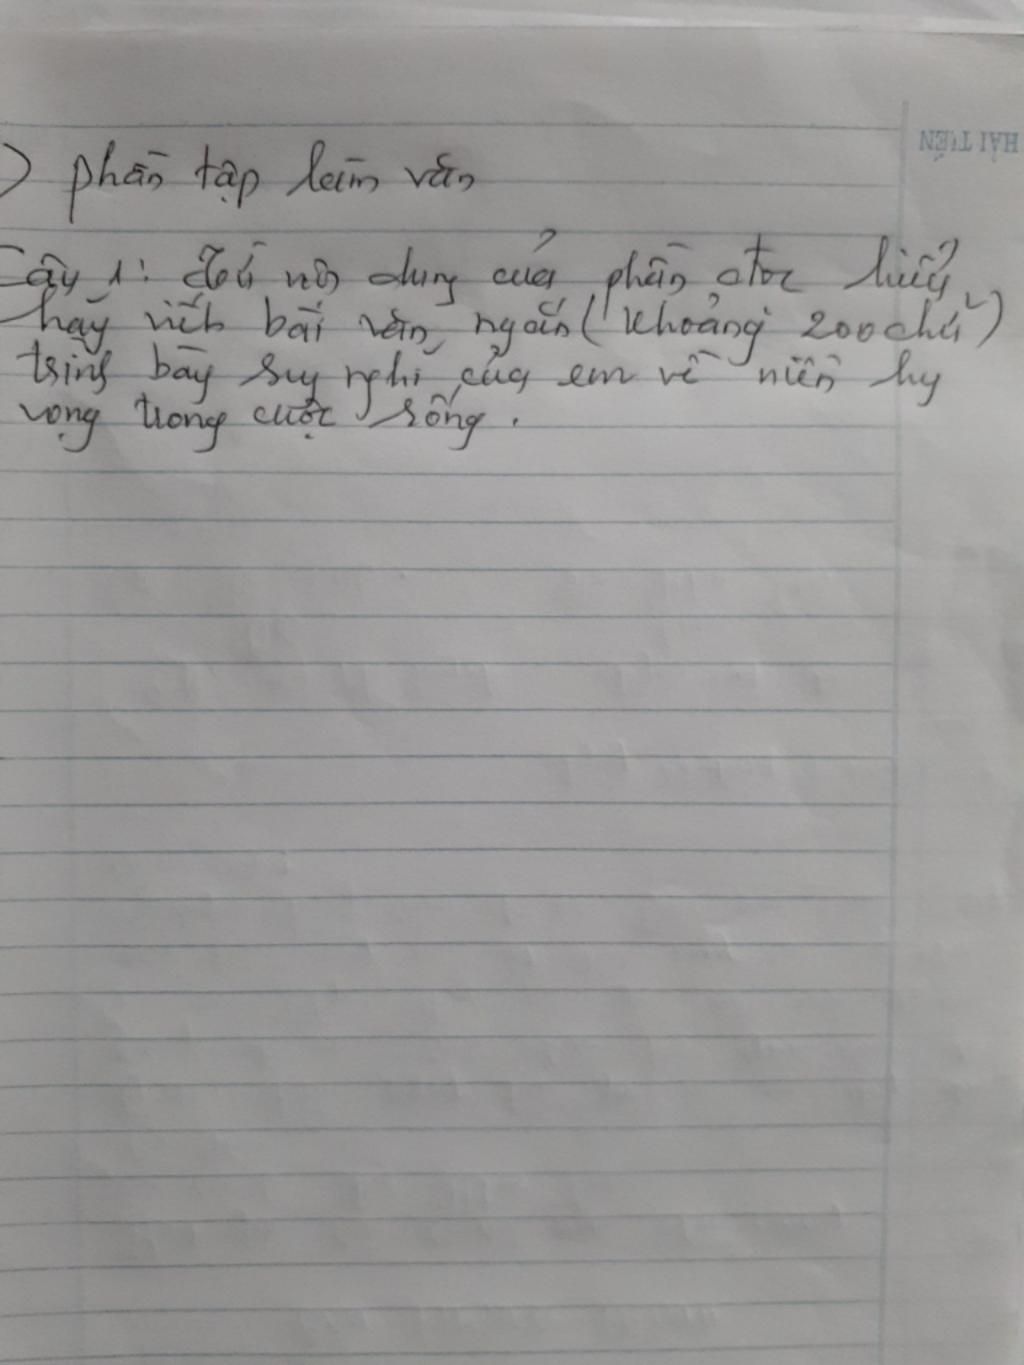 ) phần tập làm văn
HẢI TIẾN
Câu 1: Từ nội dung của phần đọc hiểu,
hãy viết bài văn ngắn (khoảng 200 chữ)
trình bày suy nghĩ của em về niềm hy
vọng trong cuộc sống.